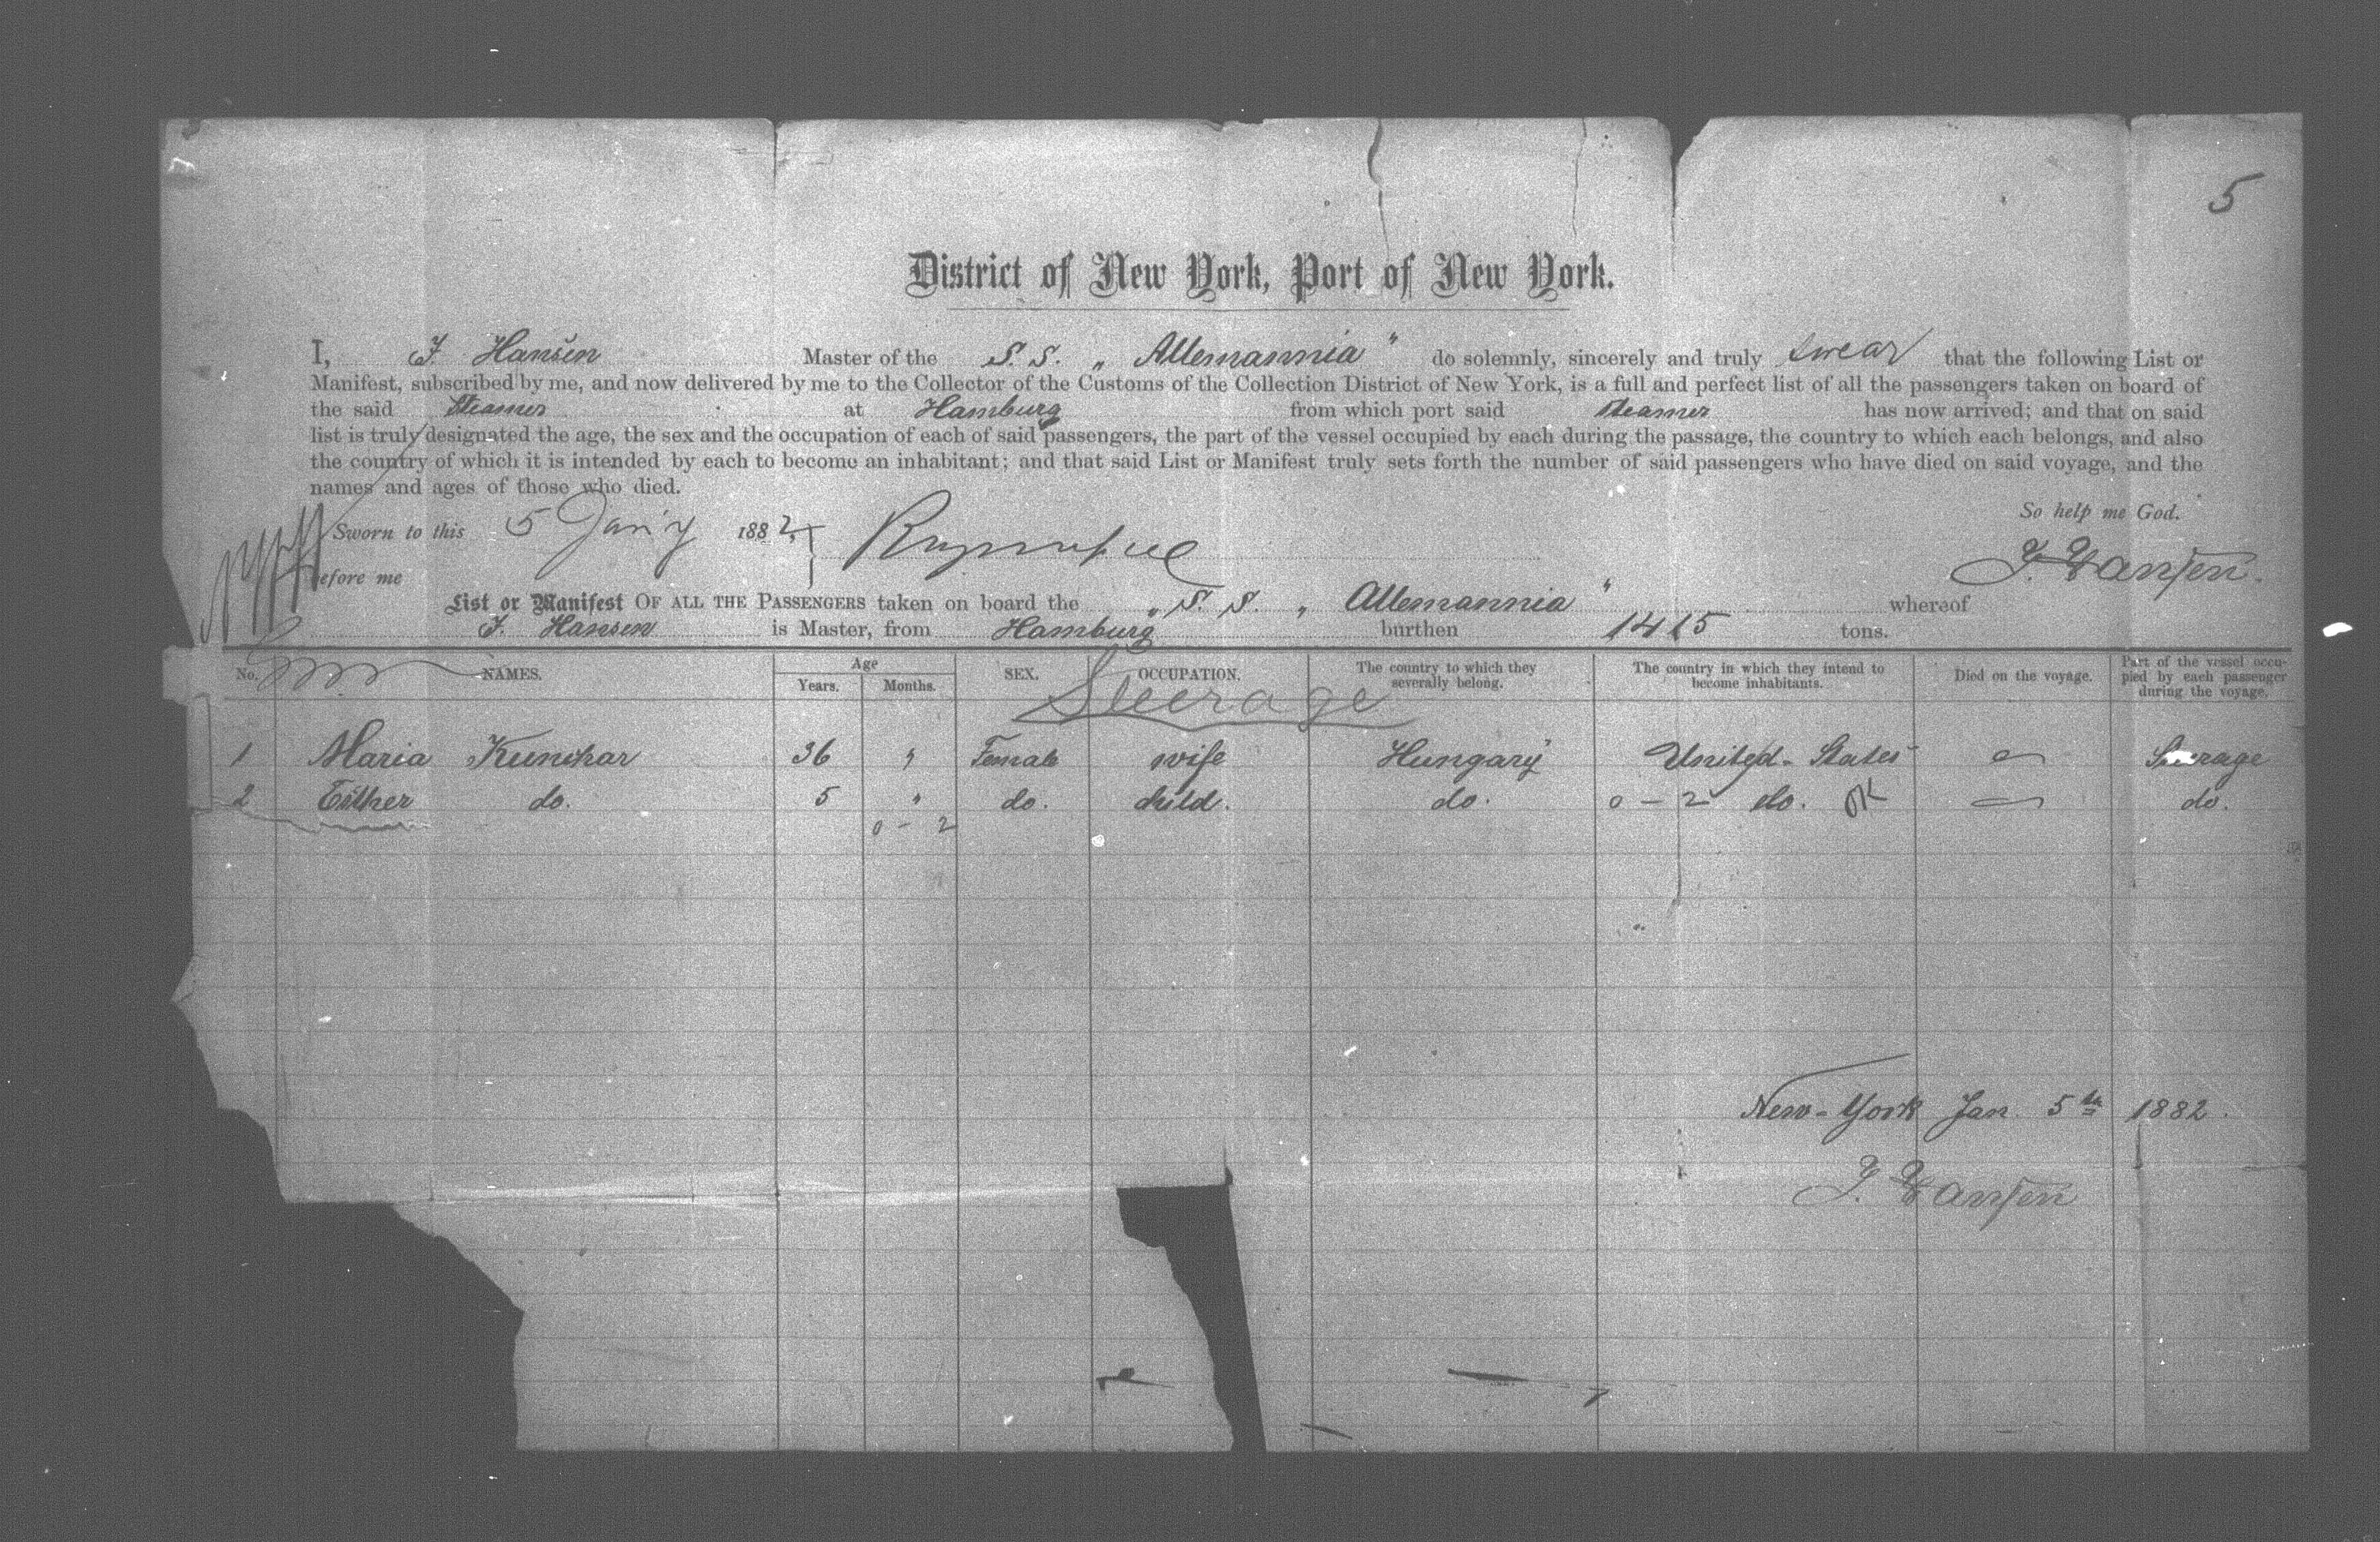 5
District of New York, Port of New York.
I, F Hansen Master of the S. S. „ Allemannia " do solemnly, sincerely and truly swear that the following List or
Manifest, subscribed by me, and now delivered by me to the Collector of the Customs of the Collection District of New York, is a full and perfect list of all the passengers taken on board of
the said Steamer at Hamburg from which port said steamer has now arrived; and that on said
list is truly designated the age, the sex and the occupation of each of said passengers, the part of the vessel occupied by each during the passage, the country to which each belongs, and also
the country of which it is intended by each to become an inhabitant; and that said List or Manifest truly sets forth the number of said passengers who have died on said voyage, and the
names and ages of those who died.
So help me God.
Sworn to this 5 Jan'y 1882,
F. Hansen.
before me
List or Manifest OF ALL THE PASSENGERS taken on board the „ S. S. „ Allemannia " whereof
F. Hansen is Master, from Hamburg burthen 1415 tons.
No. NAMES. Age Years. Months. SEX. OCCUPATION. The country to which they severally belong. The country in which they intend to become inhabitants. Died on the voyage. Part of the vessel occupied by each passenger during the voyage.
Steerage
1 Maria 36 " Female wife Hungary United-States Steerage
2 Esther do. 5 " do. child. do. 0 - 2 do. OK do.
0 - 2
New-York Jan. 5th 1882.
F. Hansen